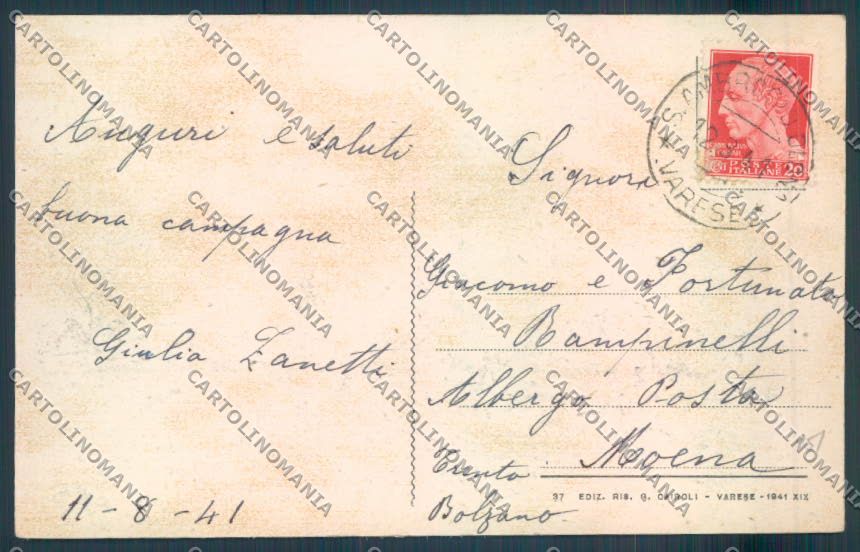 Auguri e saluti
buona campagna
Giulia Zanetti
11-8-41
Signora
Giacomo e Fortunato
Rampinelli
Albergo Posta
Moena
Trento
Bolzano
37 EDIZ. RIS. G. CAIROLI - VARESE - 1941 XIX
POSTE
ITALIANE
20
VARESE
CARTOLINOMANIA